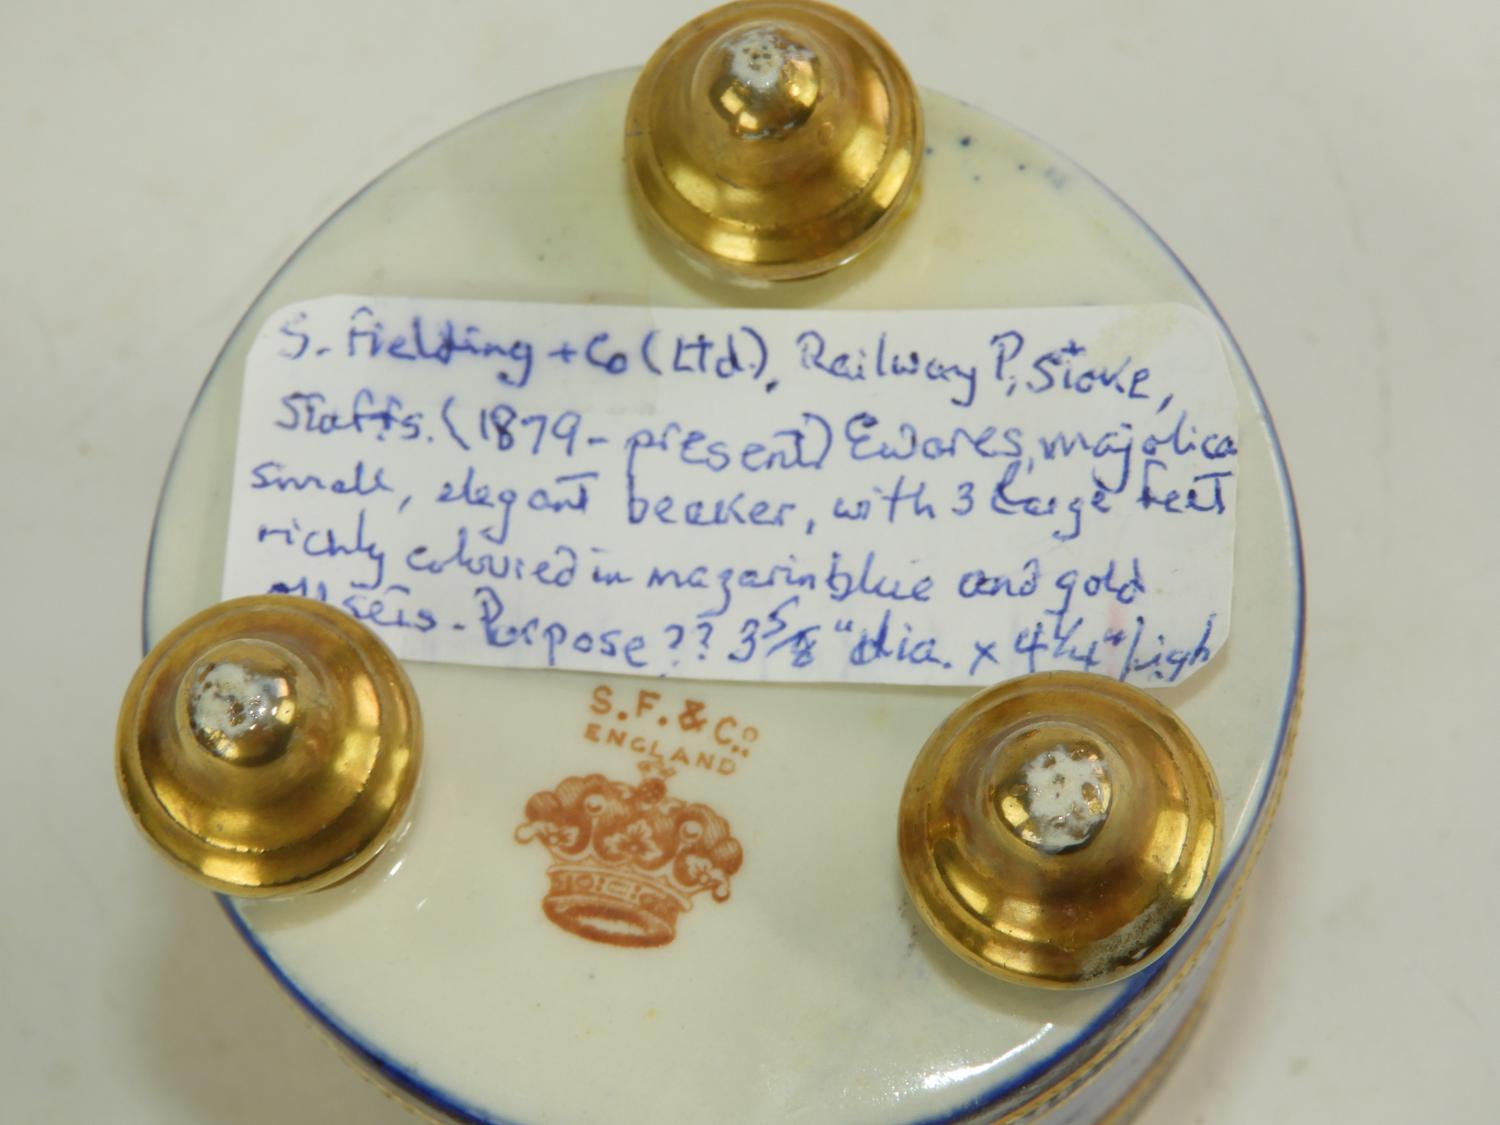 S. Fielding + Co (Ltd.), Railway P, Stoke,
Staffs. (1879 - present) Ewares, majolica
small, elegant beaker, with 3 large feet
richly coloured in mazarin blue and gold
- Purpose ?? 3 5/8" dia. x 4 1/4" high
S. F. & Co.
ENGLAND